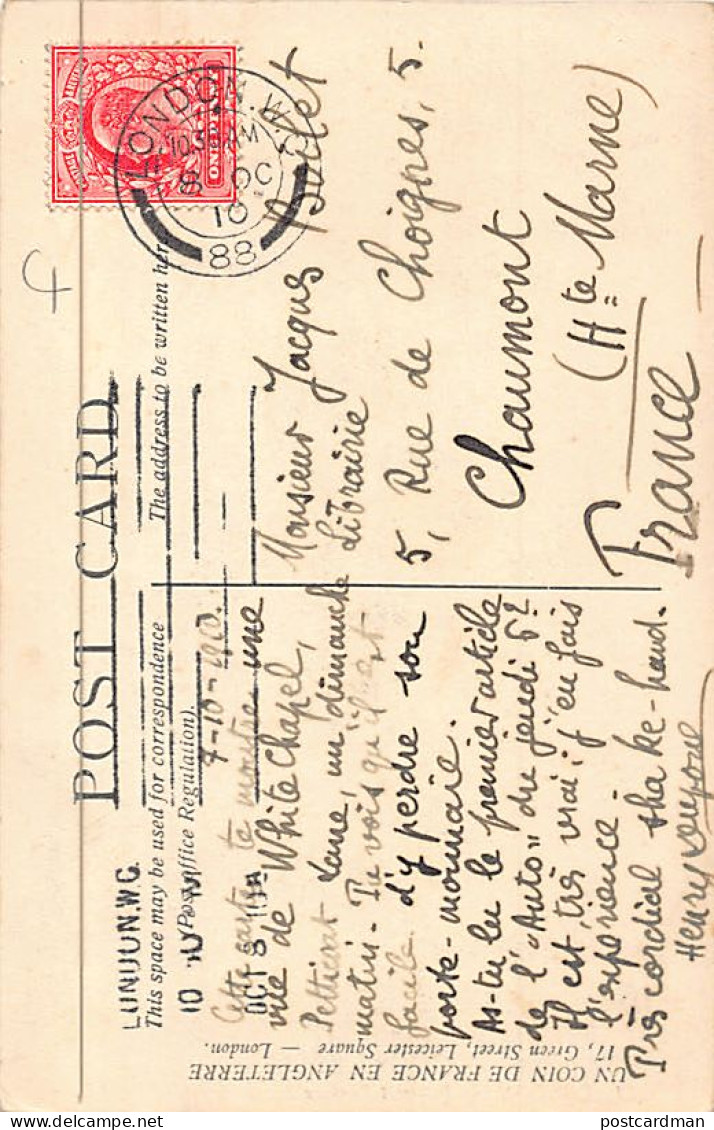 POST CARD
This space may be used for correspondence
(Post Office Regulation).
The address to be written here
LONDON.W.C.
10
OCT 8 10
LONDON.W.C.
10.30 AM
8 OC
10
88
ONE PENNY
7-10-1910.
Cette carte te montre une
vue de White Chapel,
Petticoat Lane, un dimanche
matin. Tu vois qu'il est
facile d'y perdre son
porte-monnaie.
As-tu lu le premier article
de l'"Auto" du jeudi 6?
Il est très vrai; j'en fais
l'expérience.
Très cordial shake-hand.
Henry
Monsieur Jacques
Librairie
5, Rue de Choignes, 5.
Chaumont
(Hte Marne)
France
UN COIN DE FRANCE EN ANGLETERRE
17, Green Street, Leicester Square — London.
postcardman